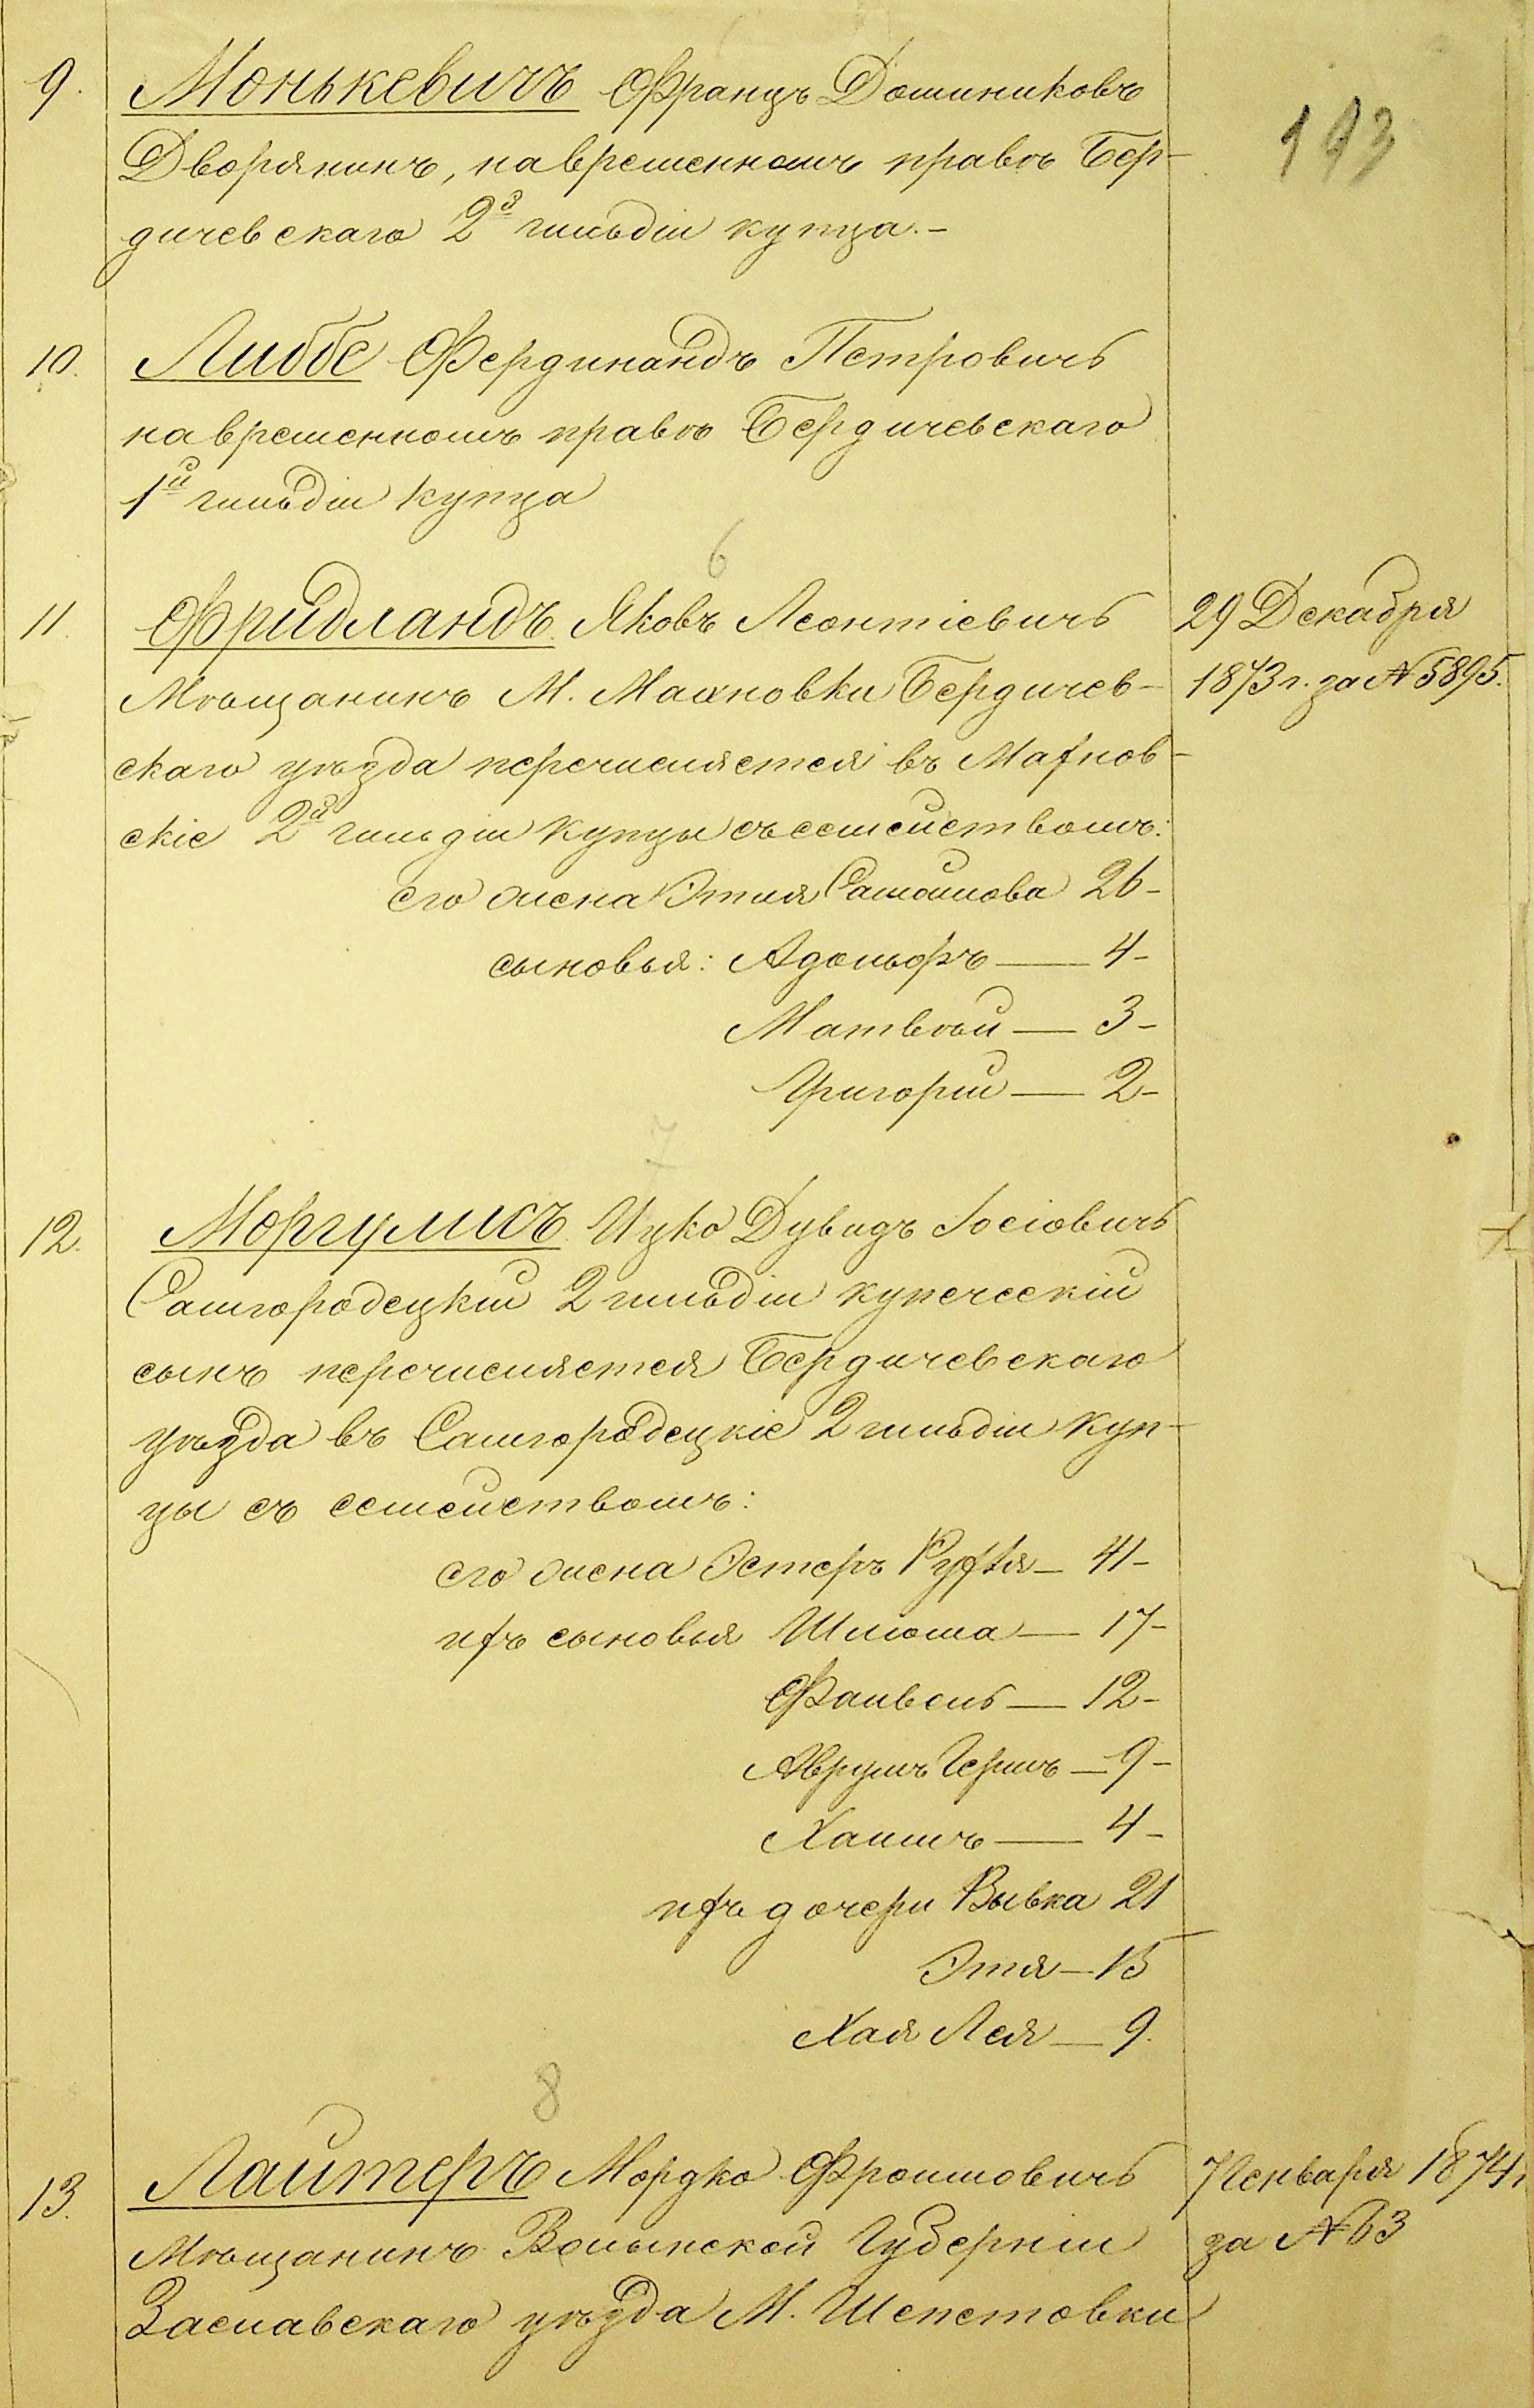 193
9. Монькевичъ Францъ Доминиковъ
Дворянинъ, на временномъ правѣ Бер-
дичевскаго 2й гильдіи купца.-
10. Либбе Фердинандъ Петровичъ
на временномъ правѣ Бердичевскаго
1й гильдіи купца
6
11. Фридландъ Яковъ Леонтіевичъ
Мѣщанинъ М. Махновки Бердичев-
скаго уѣзда перечисляется въ Махнов-
скіе 2й гильдіи купцы съ семействомъ:
его жена Этля Самойлова 26-
сыновья: Адольфъ — 4-
Матвѣй — 3-
Григорій — 2-
29 Декабря
1873 г. за № 5895.
7
12. Моргулисъ Ицко Дувидъ Іосіовичъ
Самгородецкій 2 гильдіи купеческій
сынъ перечисляется Бердичевскаго
уѣзда въ Самгородецкіе 2 гильдіи куп-
цы съ семействомъ:
его жена Эстеръ Рухля — 41-
ихъ сыновья Шлиома — 17-
Файвель — 12-
Аврумъ Гершъ — 9-
Хаимъ — 4-
ихъ дочери Рывка 21
Этя — 15
Хая Лея — 9.
8
13. Лайтеръ Мордко Фроимовичъ
Мѣщанинъ Волынской Губерніи
Заславскаго уѣзда М. Шепетовки
7 Генваря 1874 г.
за № 63